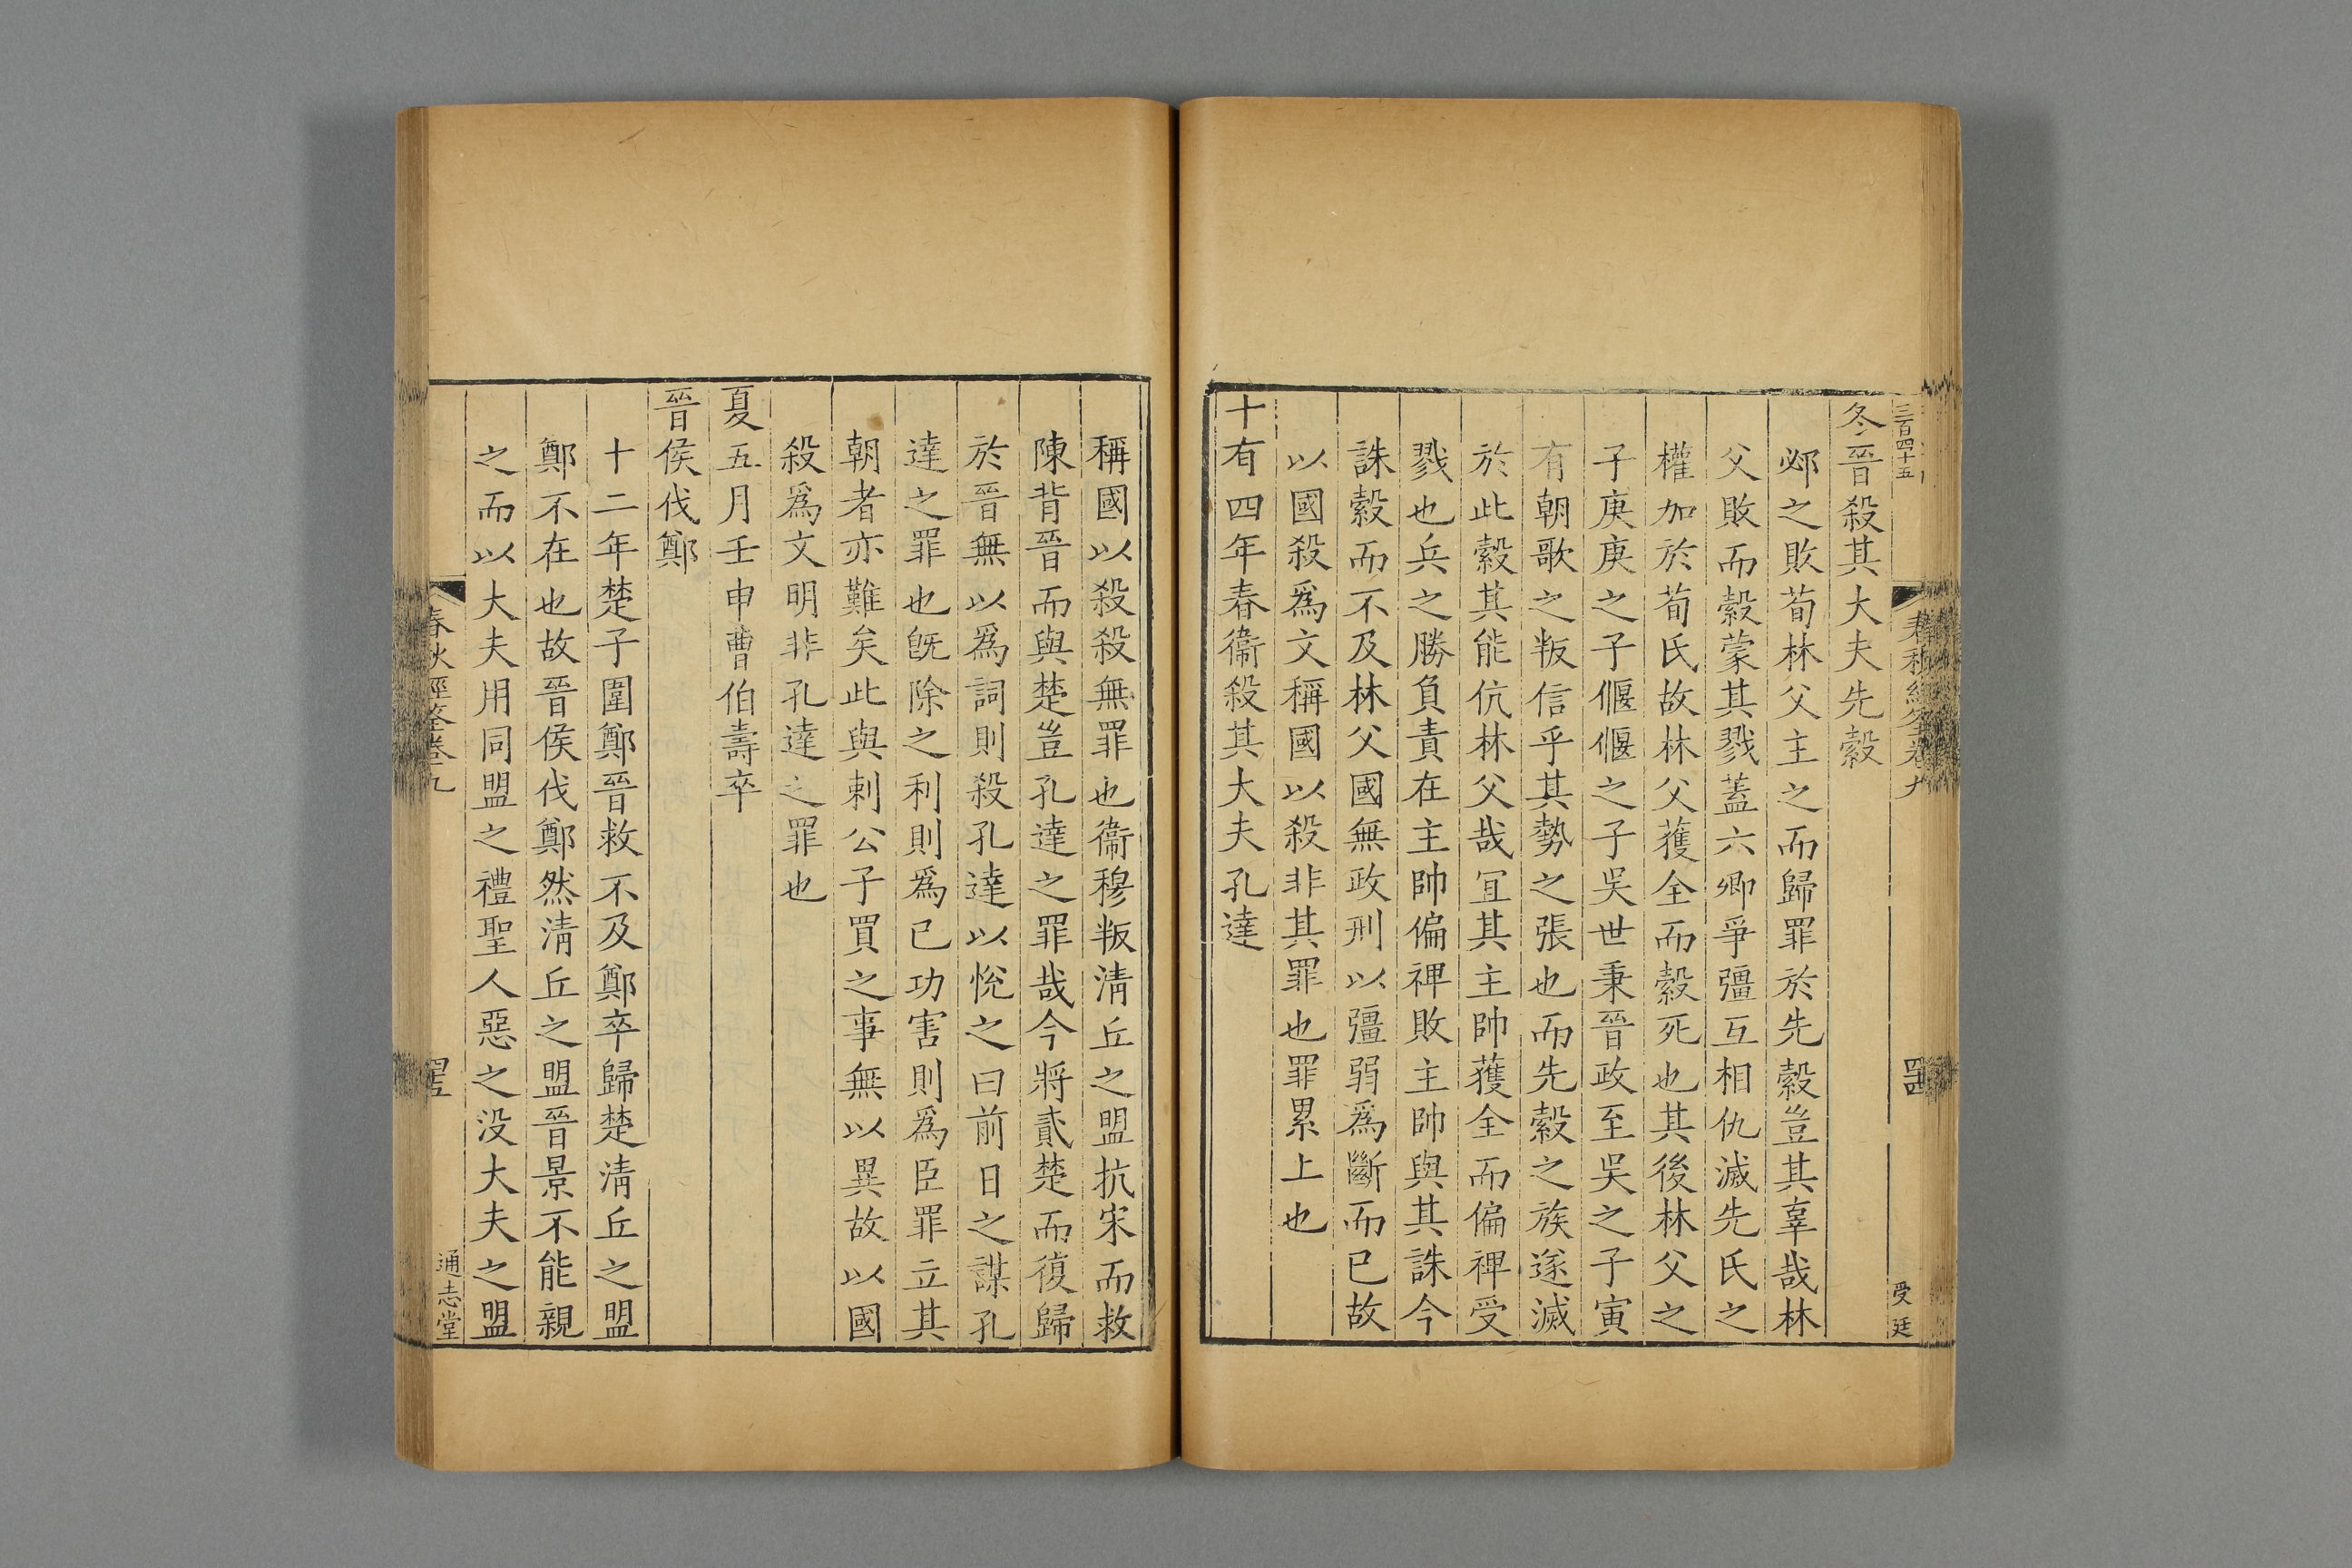 三百四十五
春秋經筌卷九
四十四
受廷
冬晉殺其大夫先縠
邲之敗荀林父主之而歸罪於先縠豈其辜哉林
父敗而縠蒙其戮蓋六卿爭彊互相仇滅先氏之
權加於荀氏故林父獲全而縠死也其後林父之
子庚庚之子偃偃之子吳世秉晉政至吳之子寅
有朝歌之叛信乎其勢之張也而先縠之族遂滅
於此縠其能伉林父哉冝其主帥獲全而偏禆受
戮也兵之勝負責在主帥偏禆敗主帥與其誅今
誅縠而不及林父國無政刑以彊弱爲斷而已故
以國殺爲文稱國以殺非其罪也罪累上也
十有四年春衞殺其大夫孔達
稱國以殺殺無罪也衞穆叛淸丘之盟抗宋而救
陳背晉而與楚豈孔達之罪哉今將貳楚而復歸
於晉無以爲詞則殺孔達以悅之曰前日之謀孔
達之罪也旣除之利則爲已功害則爲臣罪立其
朝者亦難矣此與刺公子買之事無以異故以國
殺爲文明非孔達之罪也
夏五月壬申曹伯壽卒
晉侯伐鄭
十二年楚子圍鄭晉救不及鄭卒歸楚淸丘之盟
鄭不在也故晉侯伐鄭然淸丘之盟晉景不能親
之而以大夫用同盟之禮聖人惡之没大夫之盟
春秋經筌卷九
四十五
通志堂